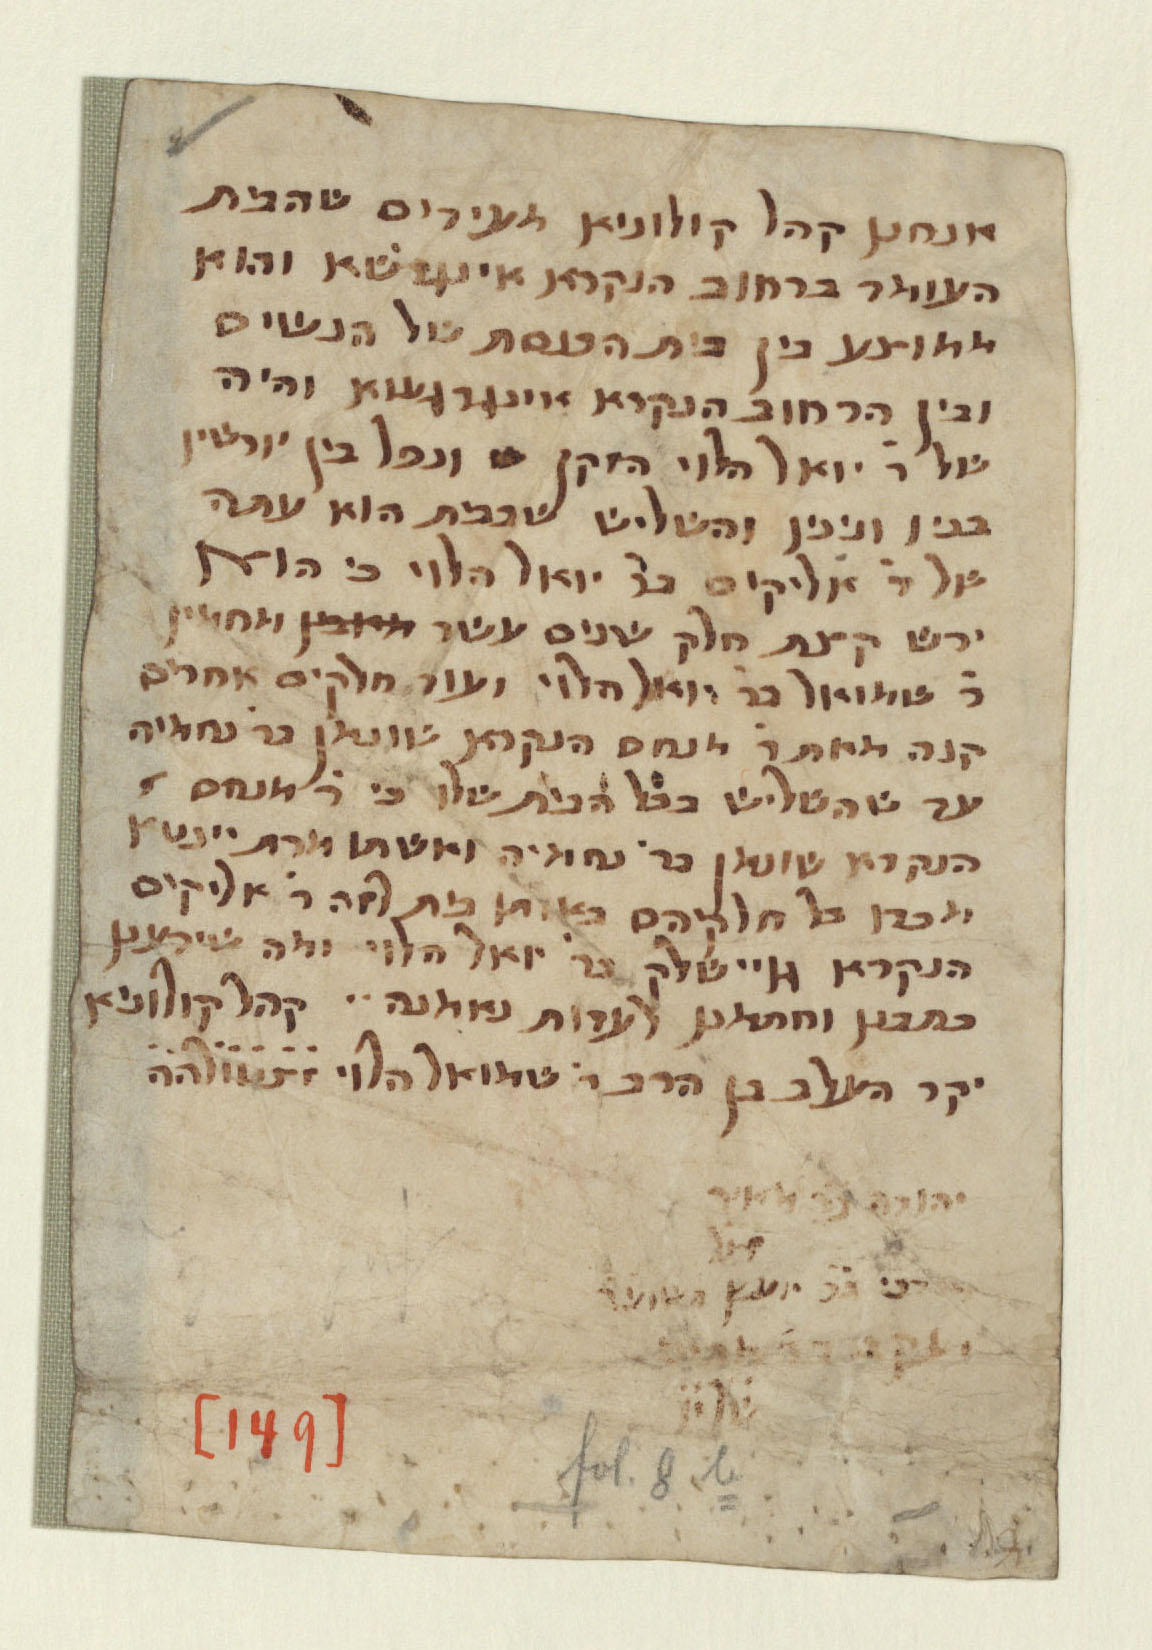 אנחנו קהל קולוניא מעידים שהבית
העומד ברחוב הנקרא אינגרשא והוא
ממוצע בין בית הכנסת של הנשים
ובין הרחוב הנקרא אינגרגשא והיה
של ר' יואל הלוי הזקן ונפל בין יורשין
בניו וניניו והשליש שבבית הוא עתה
של ר' אליקים בר' יואל הלוי כי הוא
ירש קצת חלק שנים עשר מחמיו
ר' שמואל בר' יואל הלוי ועוד חלקים אחרים
קנה מאת ר' מנחם הנקרא שונמן בר' נחמיה
עד שהשליש בכל הבית שלו כי ר' מנחם
הנקרא שונמן בר' נחמיה ואשתו מרת יינטא
מכרו כל חלקיהם באותו בית לזה ר' אליקים
הנקרא גויישלק בר' יואל הלוי ומה שידענו
כתבנו וחתמנו לעדות נאמנה קהל קולוניא
יקר העלוב בן הרב ר' שמואל הלוי
יהודה בר מאיר
[149]
fol. 8 b